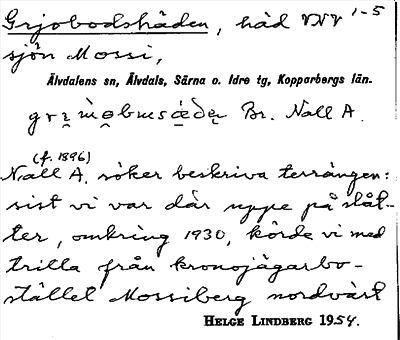 Grjobodshäden, häd VNV 1-5
sjön Mossi,
Älvdalens sn, Älvdals, Särna o. Idre tg, Kopparbergs län.
Br. Nall A.
(f. 1896)
Nall A. söker beskriva terrängen:
sist vi var där uppe på slåt-
ter, omkring 1930, körde vi med
trilla från kronojägarbo-
stället Mossiberg nordvärt
HELGE LINDBERG 1954.